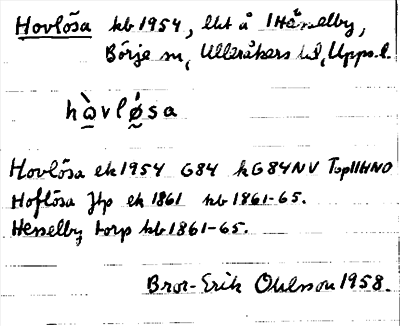 Hovlösa kb 1954, lht å 1 Hässelby,
Börje sn, Ulleråkers hd, Upps. l.
hàvlö́sa
Hovlösa ek 1954 G84 kG84NV Top11HNO
Hoflösa Jtp ek 1861 kb 1861-65.
Hesselby torp kb 1861-65.
Bror-Erik Ohlsson 1958.